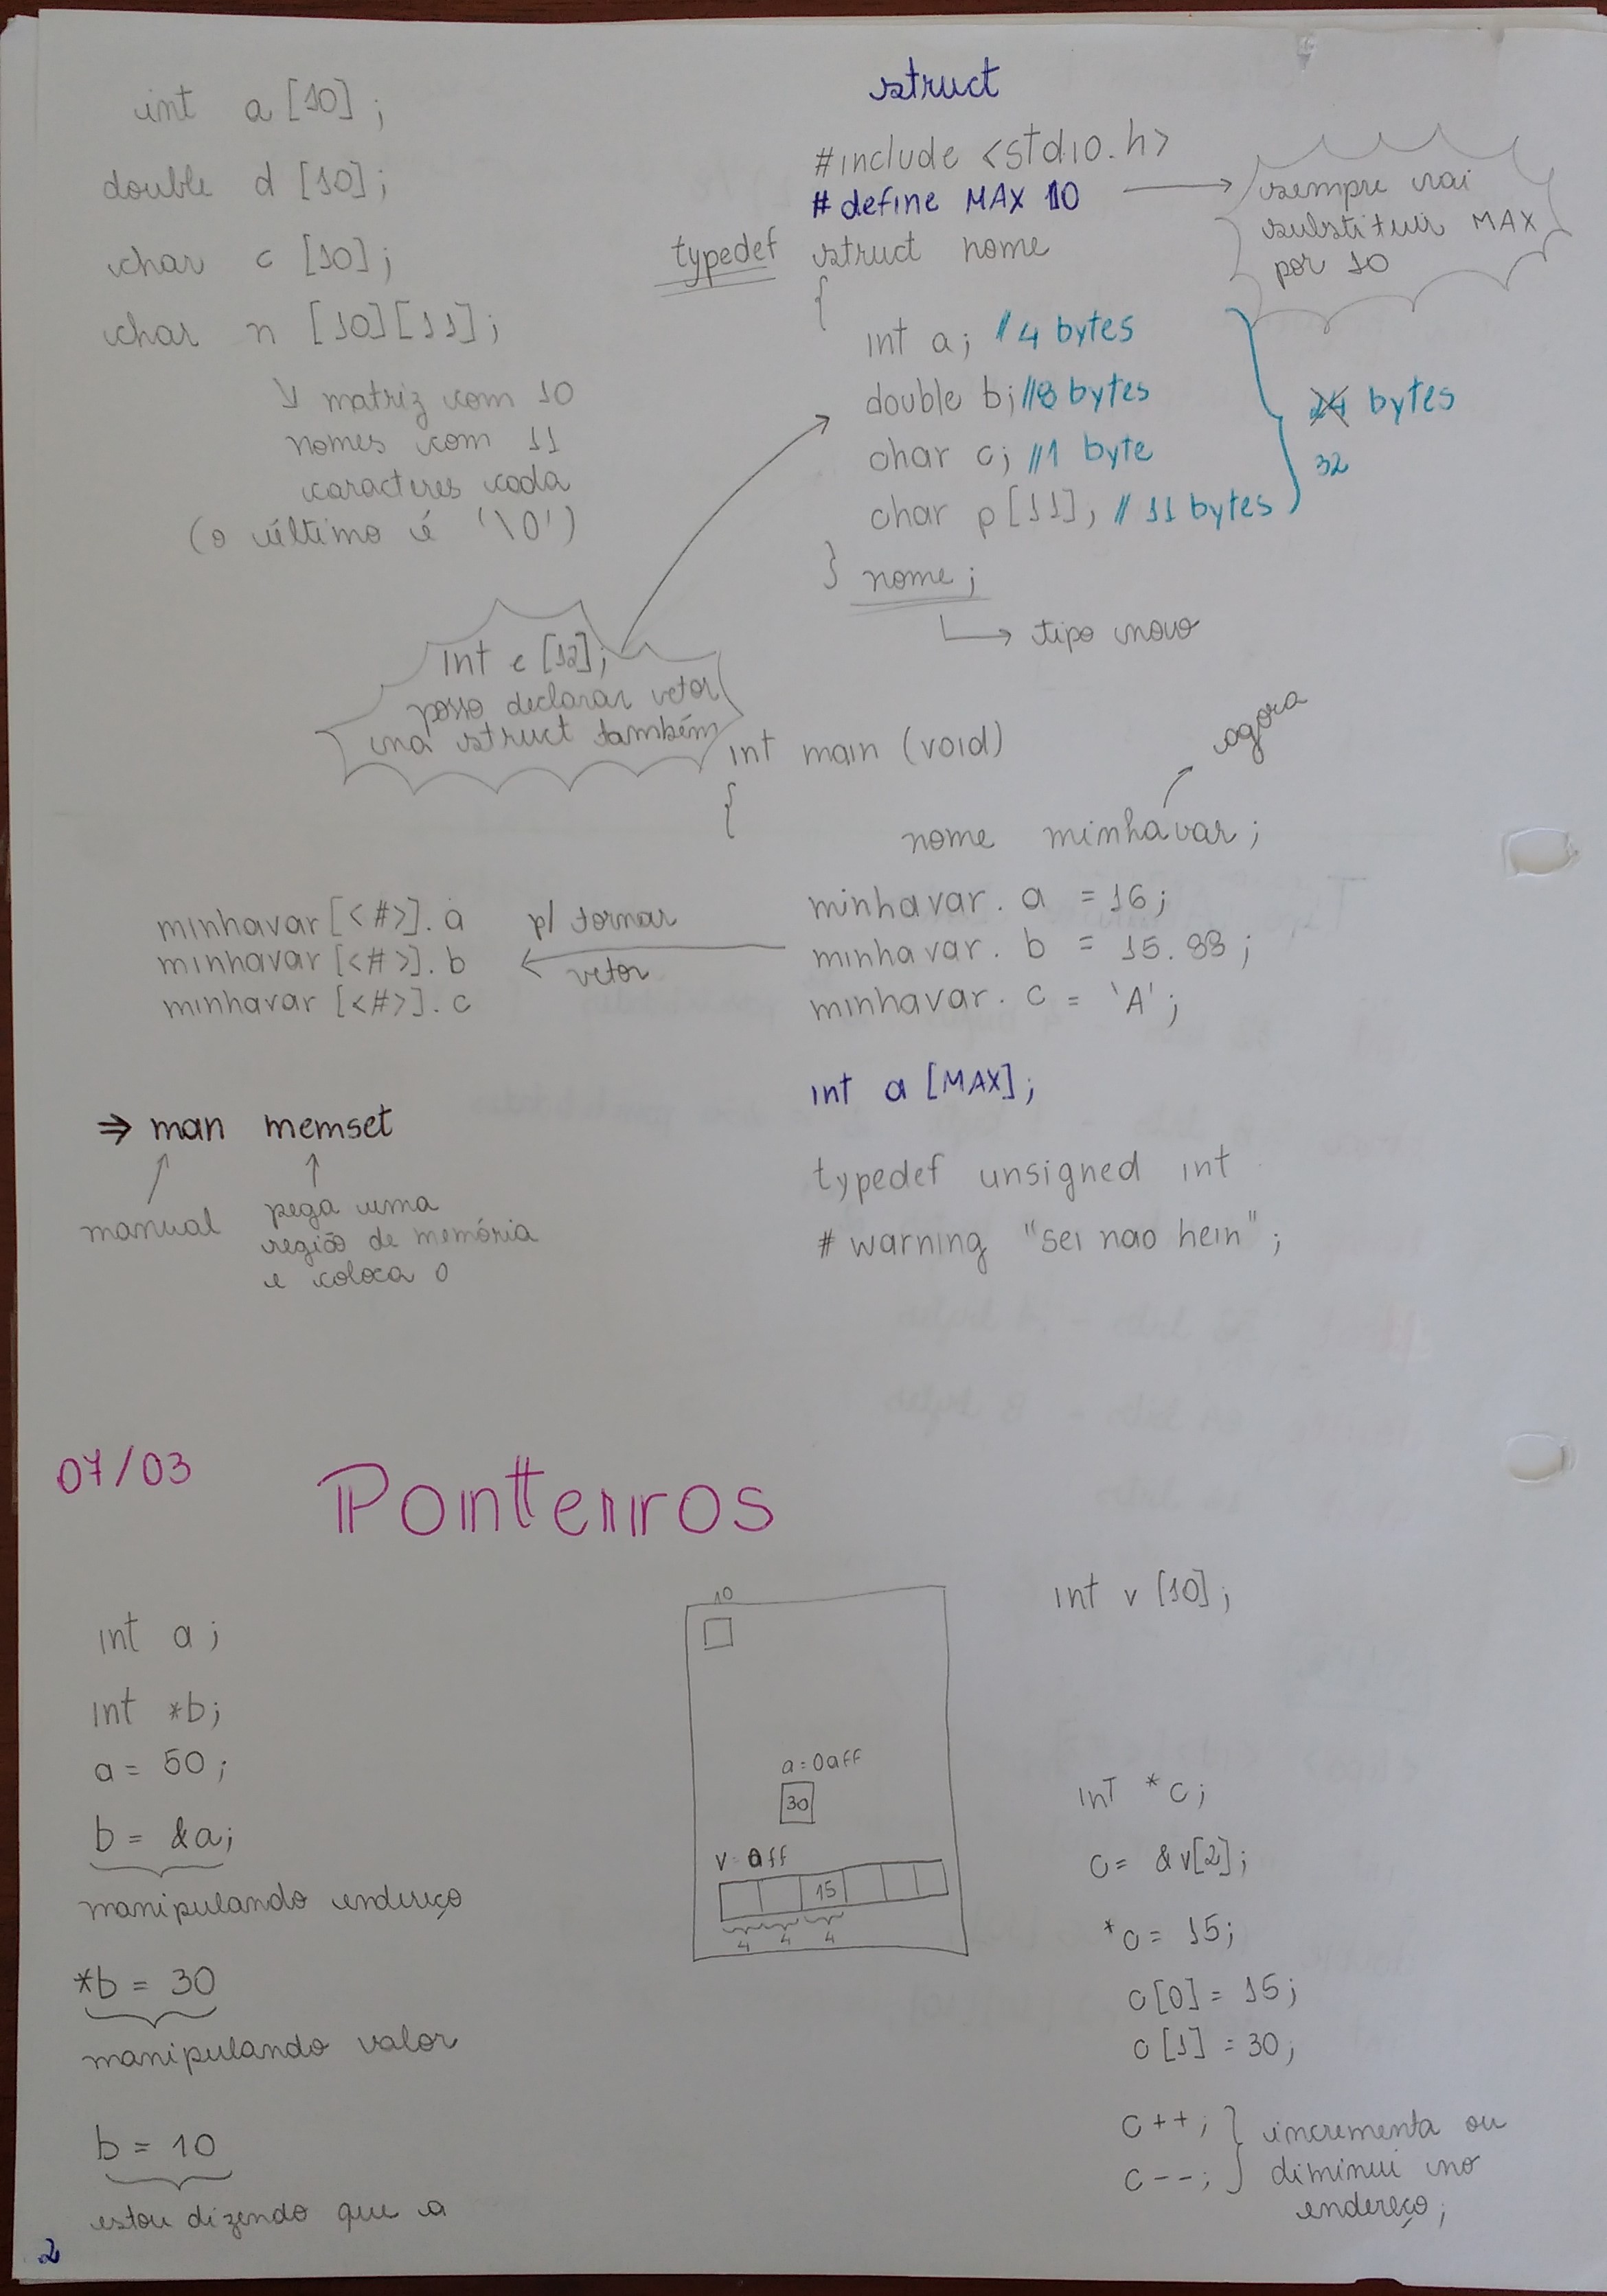 int a [10];
double d [10];
char c [10];
char n [10][11];
↳ matriz com 10
nomes com 11
caracteres cada
(o último é '\0')
struct
#include <stdio.h>
# define MAX 10 → sempre vai
substituir MAX
por 10
typedef struct nome
{
int a; // 4 bytes
double b; // 8 bytes
char c; // 1 byte
char p [11]; // 11 bytes
24 bytes
32
} nome;
↳ tipo novo
int e [12];
posso declarar vetor
na struct também
int main (void)
{
agora
nome minhavar;
minhavar. a = 16;
minhavar. b = 15.88;
minhavar. c = 'A';
p/ tornar
vetor
minhavar [<#>]. a
minhavar [<#>]. b
minhavar [<#>]. c
int a [MAX];
⇒ man memset
manual
pega uma
região de memória
e coloca 0
typedef unsigned int
# warning "sei nao hein";
07/03
Ponteiros
int a;
int *b;
a = 50;
b = &a;
manipulando endereço
*b = 30
manipulando valor
b = 10
estou dizendo que a
10
a=0aff
30
v=0ff
15
4 4 4
int v [10];
int *c;
c= &v[2];
*c= 15;
c[0] = 15;
c[1] = 30;
c++; } incrementa ou
c--; } diminui no
endereço;
2